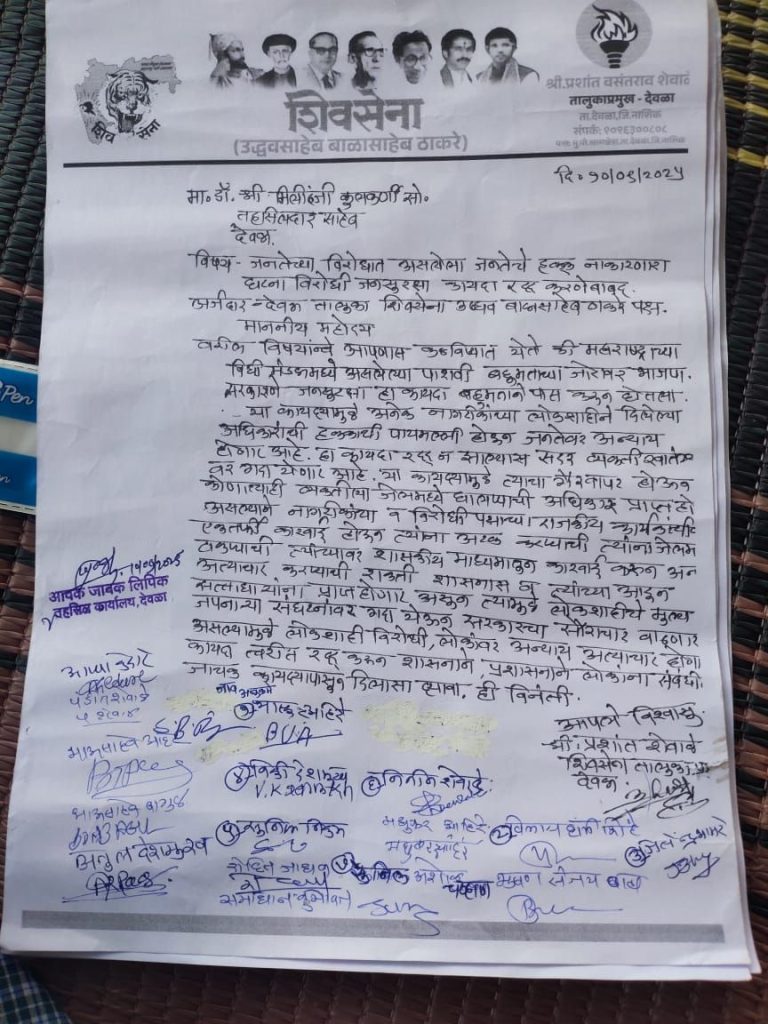 शिव सेना
श्री.प्रशांत वसंतराव शेवाळे
तालुकाप्रमुख - देवळा
ता.देवळा,जि.नाशिक
संपर्क: ९०९६३००८०८
शिवसेना
(उद्धवसाहेब बाळासाहेब ठाकरे)
दि. १०/०९/२०२५
मा. डॉ. श्री मिलींदजी कुलकर्णी सो.
तहसिलदार साहेब
देवळा.
विषय - जनतेच्या विरोधात असलेला जनतेचे हक्क नाकारणारा
घटना विरोधी जनसुरक्षा कायदा रद्द करणेबाबद.
अर्जदार - देवळा तालुका शिवसेना उध्दव बाळासाहेब ठाकरे पक्ष.
माननीय महोदय
वरील विषयान्वे आपणास कळविण्यात येते की महाराष्ट्राच्या
विधी मंडळामध्ये असलेल्या पाशवी बहुमताच्या जोरावर भाजपा.
सरकारने जनसुरक्षा हा कायदा बहुमताने पास करून घेतला.
या कायद्यामुळे अनेक नागरीकांच्या लोकशाहीने दिलेल्या
अधिकाराची हक्काची पायमल्ली होऊन जनतेवर अन्याय
होणार आहे. हा कायदा रद्द न झाल्यास सदर व्यक्ती स्वातंत्र्य
वर गदा येणार आहे. या कायद्यामुळे त्याचा गैरवापर होऊन
कोणत्याही व्यक्तीला जेलमध्ये घालण्याची अधिकार प्राप्त हो
असल्याने नागरीकांच्या व विरोधी पक्षाच्या राजकीय कार्यकर्त्यांची
एकतर्फी कारवाई होऊन त्यांना अटक करण्याची त्यांना जेलमध
टाकण्याची त्यांच्यावर शासकीय माध्यमातून कारवाई करून अन
अत्याचार करण्याची शक्ती शासनास व त्यांच्या आडून
सत्ताधाऱ्यांना प्राप्त होणार असून त्यामुळे लोकशाहीचे मुल्य
जपनाऱ्या संघटनांवर गदा येऊन सरकारचा स्वैराचार वाढणार
असल्यामुळे लोकशाही विरोधी, लोकांवर अन्याय अत्याचार होणा
कायदा त्वरीत रद्द करून शासनाने, प्रशासनाने लोकांना संबंधी
जाचक कायद्यापासून दिलासा द्यावा. ही विनंती.
आवक जावक लिपिक
तहसिल कार्यालय, देवळा
आपले विश्वासु
श्री. प्रशांत शेवाळे
शिवसेना तालुका प्र
देवळा
निकी देशमुख
V.K.देशमुख
नितीन शेवाळे
मधुकर आहिरे
अतुल देशमुख
रोहित जाधव
सुनिल अशोक चव्हाण
भूषण संजय
समाधान
Pen